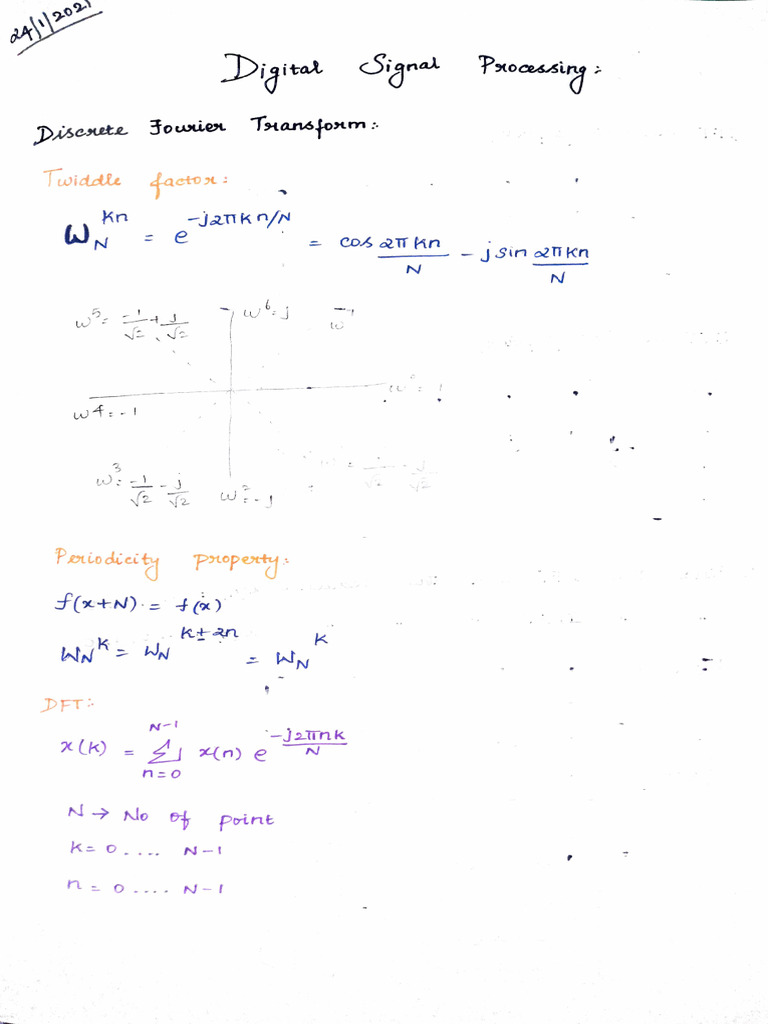 24/1/2021
Digital Signal Processing:
Discrete Fourier Transform:
Twiddle factor:
W_N^{kn} = e^{-j2πkn/N} = cos 2πkn/N - j sin 2πkn/N
ω^5 = -1/√2 + j/√2
ω^6 = j
ω^4 = -1
ω^3 = -1/√2 - j/√2
ω^2 = -j
Periodicity property:
f(x+N) = f(x)
W_N^k = W_N^{k±2n} = W_N^k
DFT:
x(k) = Σ_{n=0}^{N-1} x(n) e^{-j2πnk/N}
N → No of point
k = 0 .... N-1
n = 0 .... N-1